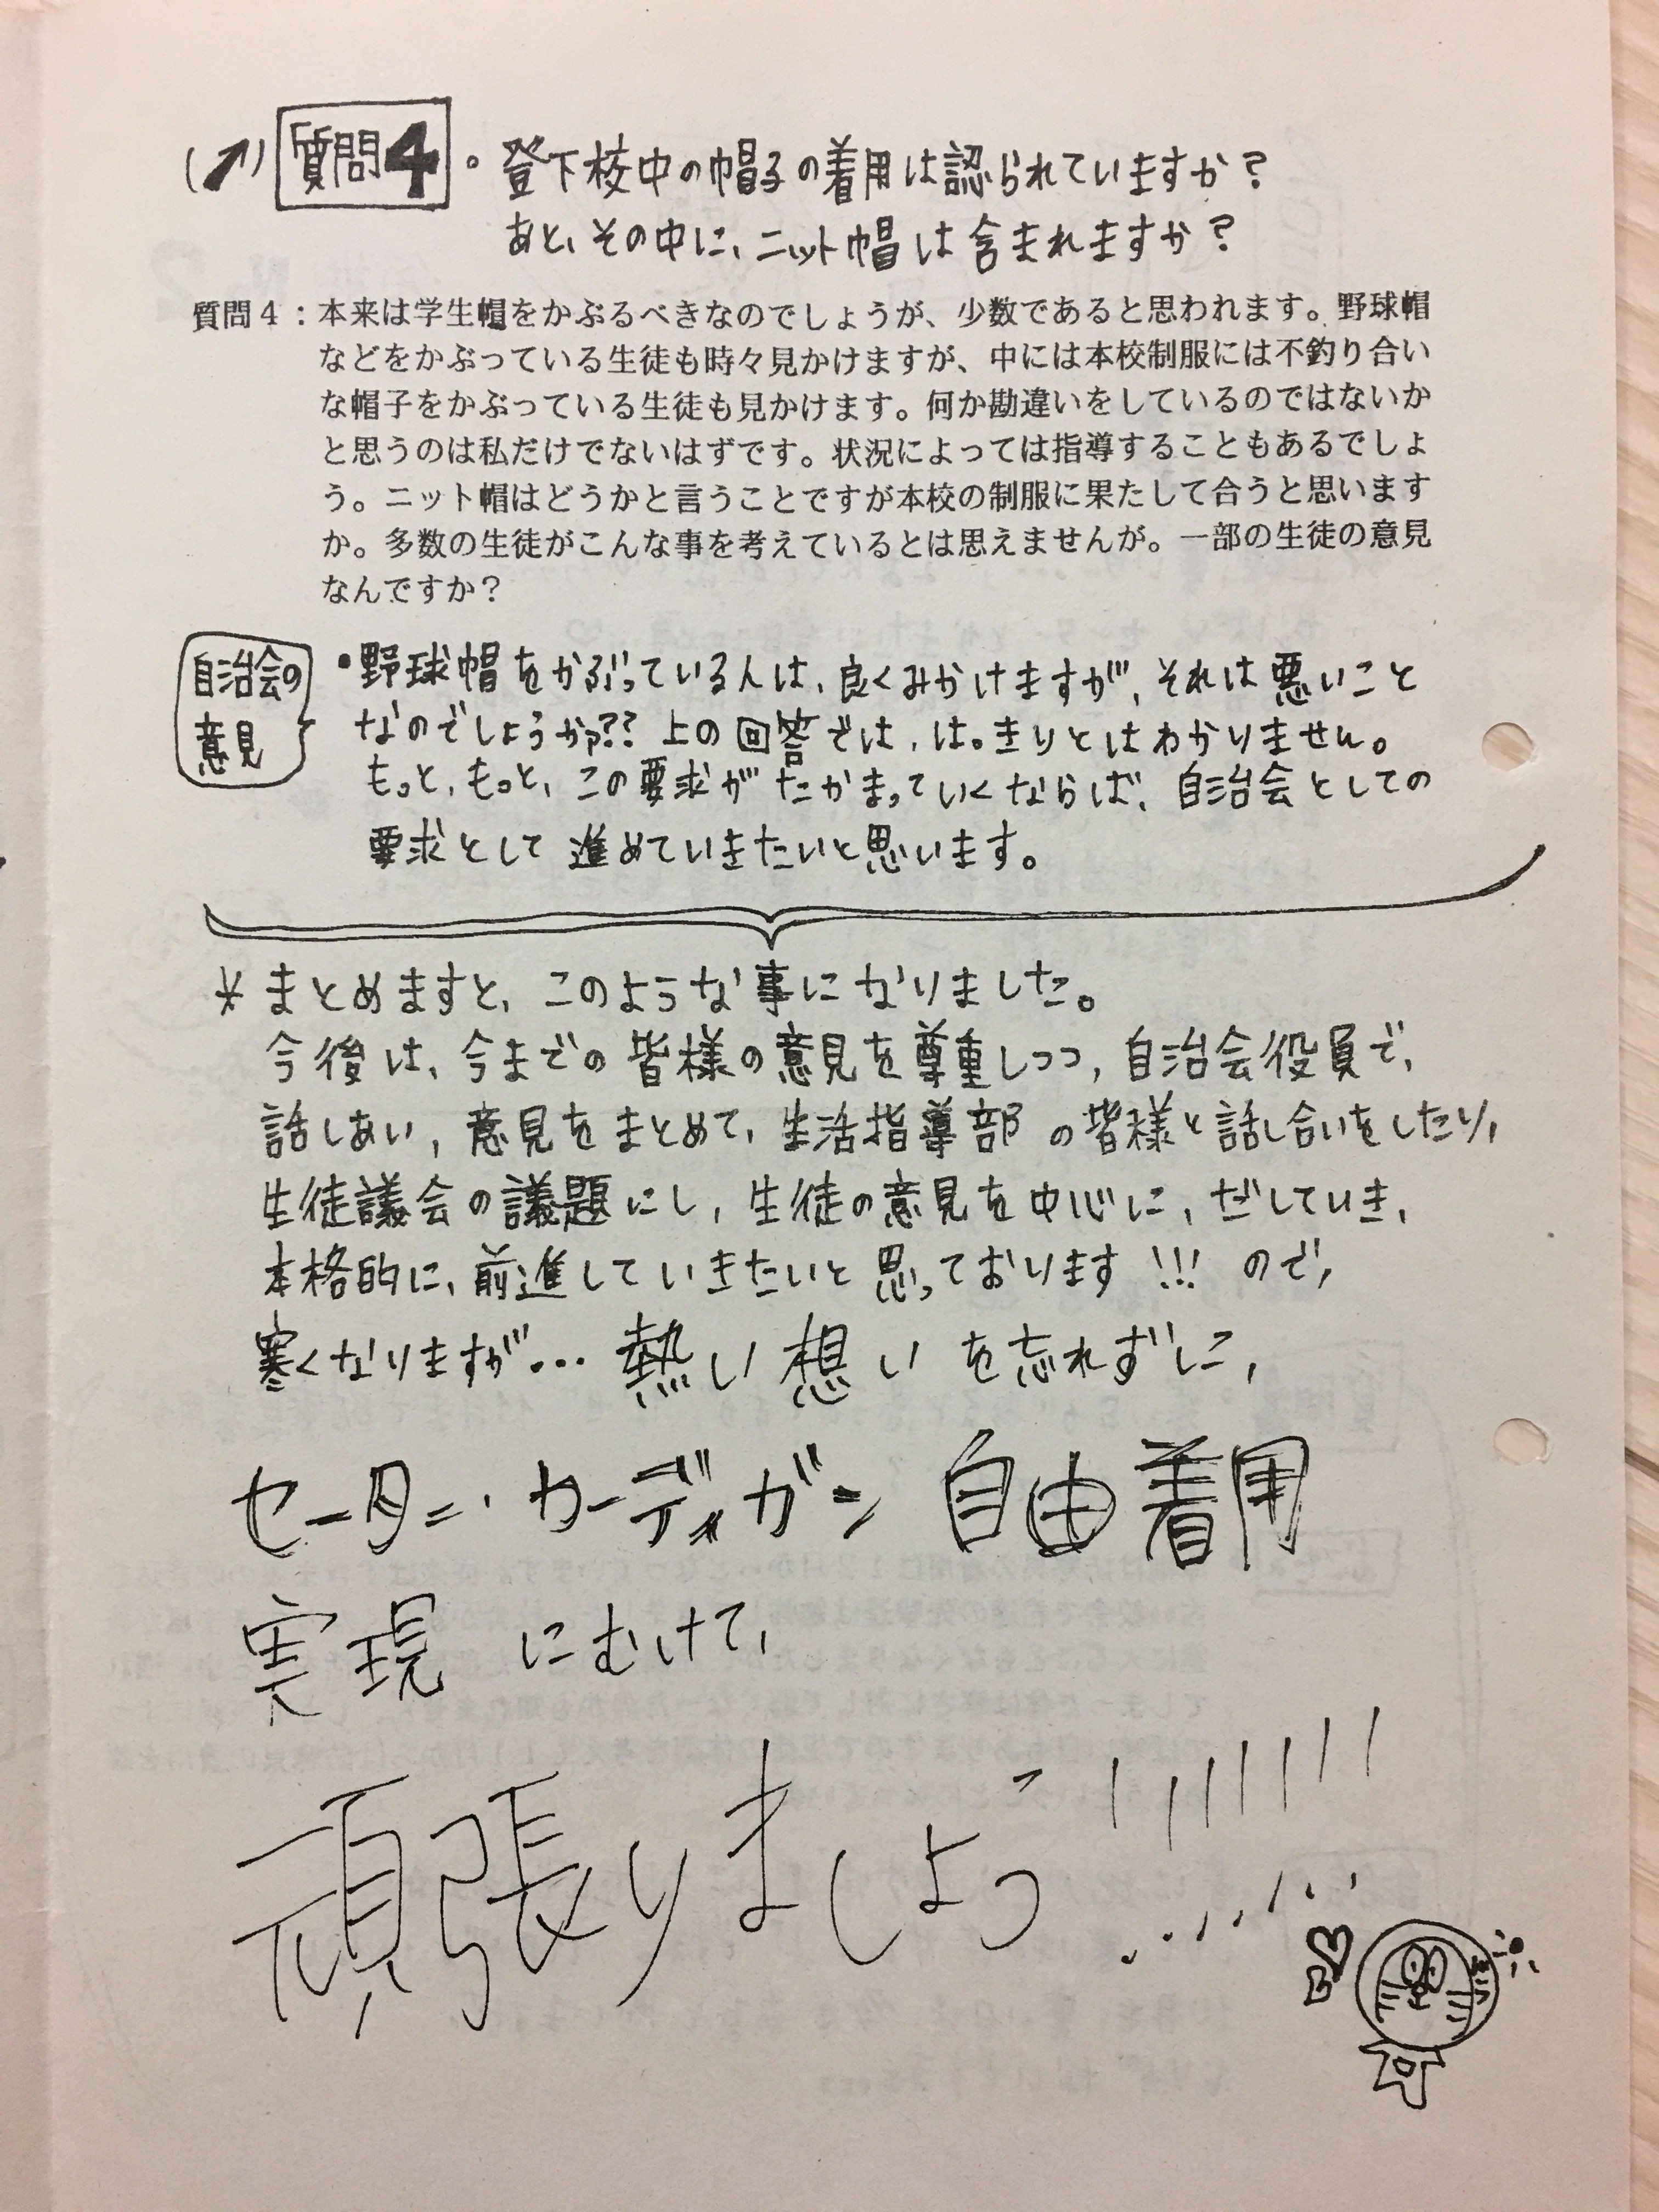 (↗) 質問4 。登下校中の帽子の着用は認られていますか？
あと、その中に、ニット帽は含まれますか？
質問４：本来は学生帽をかぶるべきなのでしょうが、少数であると思われます。野球帽
などをかぶっている生徒も時々見かけますが、中には本校制服には不釣り合い
な帽子をかぶっている生徒も見かけます。何か勘違いをしているのではないか
と思うのは私だけでないはずです。状況によっては指導することもあるでしょ
う。ニット帽はどうかと言うことですが本校の制服に果たして合うと思います
か。多数の生徒がこんな事を考えているとは思えませんが。一部の生徒の意見
なんですか？
自治会の
意見
•野球帽をかぶっている人は、良くみかけますが、それは悪いこと
なのでしょうか??上の回答では、は。きりとはわかりません。
もっと、もっと、この要求がたかまっていくならば、自治会としての
要求として進めていきたいと思います。
＊まとめますと、このような事になりました。
今後は、今までの皆様の意見を尊重しつつ、自治会役員で、
話しあい、意見をまとめて、生活指導部の皆様と話し合いをしたり、
生徒議会の議題にし、生徒の意見を中心に、だしていき、
本格的に、前進していきたいと思っております!!!ので、
寒くなりますが…熱い想いを忘れずに、
セーター・カーディガン自由着用
実現にむけて、
頑張りましょう!!!!!!!